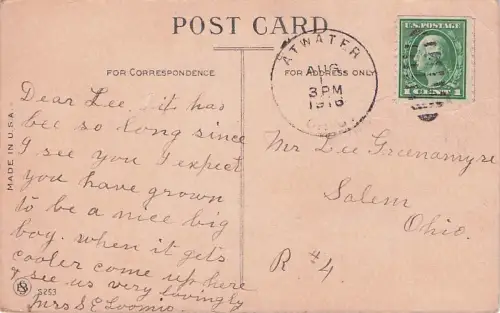 POST CARD
FOR CORRESPONDENCE
FOR ADDRESS ONLY
MADE IN U.S.A.
ATWATER
AUG
3PM
1916
U.S. POSTAGE
1 CENT 1
Dear Lee. it has
bee so long since
I see you I expect
you have grown
to be a nice big
boy. when it gets
cooler come up here
& see us very lovingly
Mrs S E Loomis
5253
Mr Lee Greenamyre
Salem
Ohio.
R #4